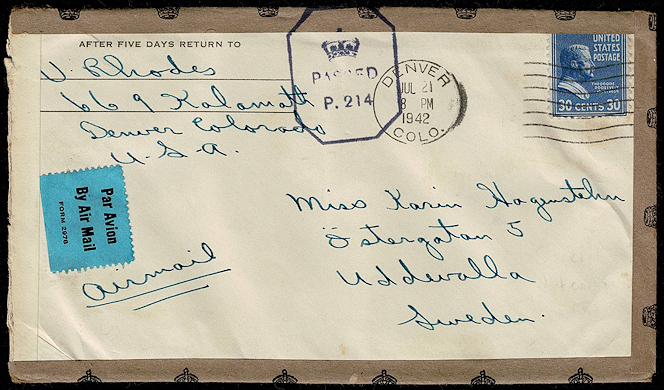 AFTER FIVE DAYS RETURN TO
V. Rhodes
669 Kalamath
Denver Colorado
U.S.A.
PASSED
P. 214
DENVER
JUL 21
8 PM
1942
COLO.
UNITED
STATES
POSTAGE
THEODORE
ROOSEVELT
30 CENTS 30
Par Avion
By Air Mail
FORM 2978
airmail
Miss Karin Hogenstehn
Östergatan 5
Uddevalla
Sweden.